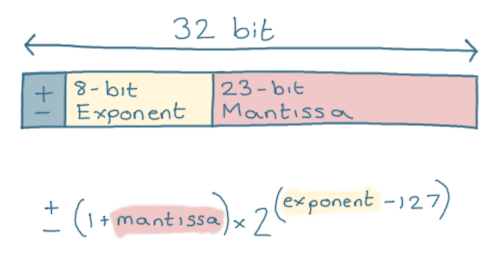 32 bit
+
-
8-bit
Exponent
23-bit
Mantissa
± (1 + mantissa) × 2^(exponent - 127)